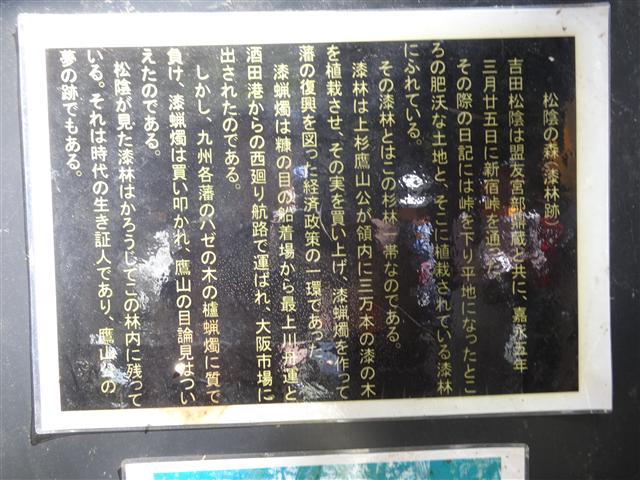 松陰の森(漆林跡)
吉田松陰は盟友宮部鼎蔵と共に、嘉永五年
三月廿五日に新宿峠を通った
その際の日記には峠を下り平地になったとこ
ろの肥沃な土地と、そこに植栽されている漆林
にふれている。
その漆林とはこの杉林一帯なのである。
漆林は上杉鷹山公が領内に三万本の漆の木
を植栽させ、その実を買い上げ、漆蝋燭を作って
藩の復興を図った経済政策の一環であった
漆蝋燭は糠の目の船着場から最上川舟運と
酒田港からの西廻り航路で運ばれ、大阪市場に
出されたのである。
しかし、九州各藩のハゼの木の櫨蝋燭に質で
負け、漆蝋燭は買い叩かれ、鷹山の目論見はつい
えたのである。
松陰が見た漆林はかろうじてこの林内に残って
いる。それは時代の生き証人であり、鷹山公の
夢の跡でもある。